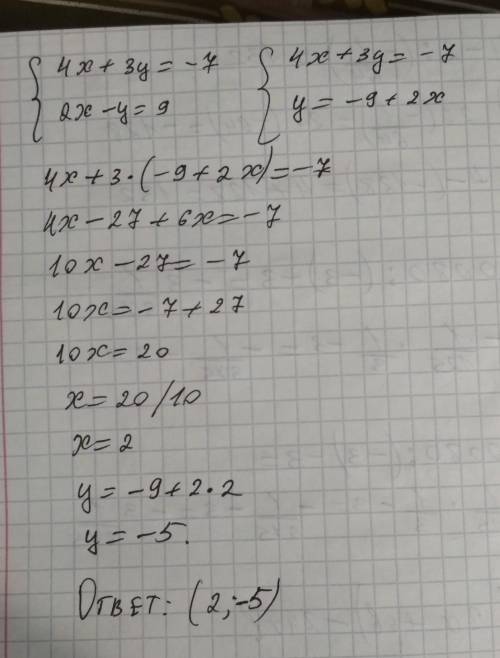 4x + 3y = -7    4x + 3y = -7
2x - y = 9    y = -9 + 2x
4x + 3·(-9 + 2x) = -7
4x - 27 + 6x = -7
10x - 27 = -7
10x = -7 + 27
10x = 20
x = 20/10
x = 2
y = -9 + 2·2
y = -5.
Ответ: (2; -5)